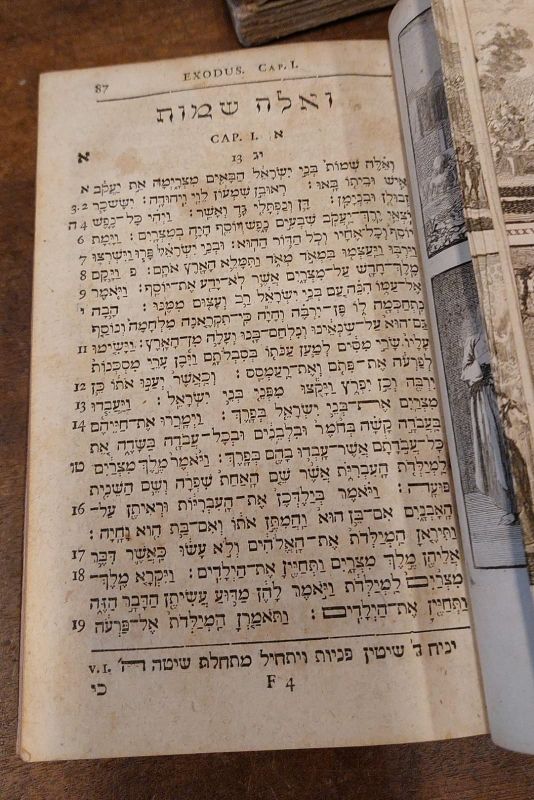 87 EXODUS. CAP. I.
ואלה שמות
CAP. I. א
א
יג 13
וְאֵלֶּה שְׁמוֹת בְּנֵי יִשְׂרָאֵל הַבָּאִים מִצְרָיְמָה אֵת יַעֲקֹב א
אִישׁ וּבֵיתוֹ בָּאוּ׃ רְאוּבֵן שִׁמְעוֹן לֵוִי וִיהוּדָה׃ יִשָּׂשכָר 3.2
זְבוּלֻן וּבִנְיָמִן׃ דָּן וְנַפְתָּלִי גָּד וְאָשֵׁר׃ וַיְהִי כָּל־נֶפֶשׁ 4 ה
יֹצְאֵי יֶרֶךְ־יַעֲקֹב שִׁבְעִים נָפֶשׁ וְיוֹסֵף הָיָה בְמִצְרָיִם׃ וַיָּמָת 6
יוֹסֵף וְכָל־אֶחָיו וְכֹל הַדּוֹר הַהוּא׃ וּבְנֵי יִשְׂרָאֵל פָּרוּ וַיִּשְׁרְצוּ 7
וַיִּרְבּוּ וַיַּעַצְמוּ בִּמְאֹד מְאֹד וַתִּמָּלֵא הָאָרֶץ אֹתָם׃ פ וַיָּקָם 8
מֶלֶךְ־חָדָשׁ עַל־מִצְרָיִם אֲשֶׁר לֹא־יָדַע אֶת־יוֹסֵף׃ וַיֹּאמֶר 9
אֶל־עַמּוֹ הִנֵּה עַם בְּנֵי יִשְׂרָאֵל רַב וְעָצוּם מִמֶּנּוּ׃ הָבָה י
נִתְחַכְּמָה לוֹ פֶּן־יִרְבֶּה וְהָיָה כִּי־תִקְרֶאנָה מִלְחָמָה וְנוֹסַף
גַּם־הוּא עַל־שֹׂנְאֵינוּ וְנִלְחַם־בָּנוּ וְעָלָה מִן־הָאָרֶץ׃ וַיָּשִׂימוּ 11
עָלָיו שָׂרֵי מִסִּים לְמַעַן עַנֹּתוֹ בְּסִבְלֹתָם וַיִּבֶן עָרֵי מִסְכְּנוֹת
לְפַרְעֹה אֶת־פִּתֹם וְאֶת־רַעַמְסֵס׃ וְכַאֲשֶׁר יְעַנּוּ אֹתוֹ כֵּן 12
יִרְבֶּה וְכֵן יִפְרֹץ וַיָּקֻצוּ מִפְּנֵי בְּנֵי יִשְׂרָאֵל׃ וַיַּעֲבִדוּ 13
מִצְרַיִם אֶת־בְּנֵי יִשְׂרָאֵל בְּפָרֶךְ׃ וַיְמָרְרוּ אֶת־חַיֵּיהֶם 14
בַּעֲבֹדָה קָשָׁה בְּחֹמֶר וּבִלְבֵנִים וּבְכָל־עֲבֹדָה בַּשָּׂדֶה אֵת
כָּל־עֲבֹדָתָם אֲשֶׁר־עָבְדוּ בָהֶם בְּפָרֶךְ׃ וַיֹּאמֶר מֶלֶךְ מִצְרַיִם טו
לַמְיַלְּדֹת הָעִבְרִיֹּת אֲשֶׁר שֵׁם הָאַחַת שִׁפְרָה וְשֵׁם הַשֵּׁנִית
פּוּעָה׃ וַיֹּאמֶר בְּיַלֶּדְכֶן אֶת־הָעִבְרִיּוֹת וּרְאִיתֶן עַל־ 16
הָאָבְנָיִם אִם־בֵּן הוּא וַהֲמִתֶּן אֹתוֹ וְאִם־בַּת הִוא וָחָיָה׃
וַתִּירֶאןָ הַמְיַלְּדֹת אֶת־הָאֱלֹהִים וְלֹא עָשׂוּ כַּאֲשֶׁר דִּבֶּר 17
אֲלֵיהֶן מֶלֶךְ מִצְרָיִם וַתְּחַיֶּיןָ אֶת־הַיְלָדִים׃ וַיִּקְרָא מֶלֶךְ־ 18
מִצְרַיִם לַמְיַלְּדֹת וַיֹּאמֶר לָהֶן מַדּוּעַ עֲשִׂיתֶן הַדָּבָר הַזֶּה
וַתְּחַיֶּיןָ אֶת־הַיְלָדִים׃ וַתֹּאמַרְןָ הַמְיַלְּדֹת אֶל־פַּרְעֹה 19
V. I. יניח ד׳ שיטין פניות ויתחיל מתחלת שיטה ה׳
כי F 4